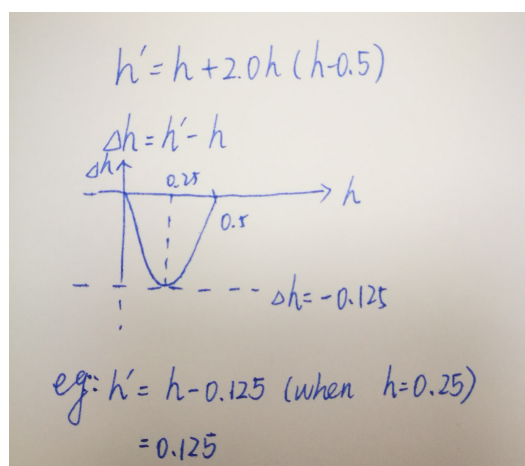 h′ = h + 2.0h (h-0.5)
Δh = h′ - h
Δh
0.25
h
0.5
Δh = -0.125
eg: h′ = h - 0.125 (when h = 0.25)
= 0.125